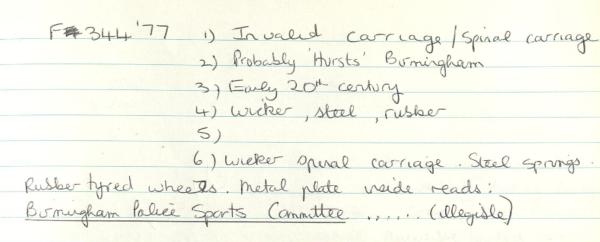 F344'77 1) Invalid carriage / Spinal carriage
2) Probably 'Hursts' Birmingham
3) Early 20th century
4) wicker, steel, rubber
5)
6) wicker spinal carriage. Steel springs.
Rubber tyred wheels. Metal plate inside reads:
Birmingham Police Sports Committee ...... (illegible)